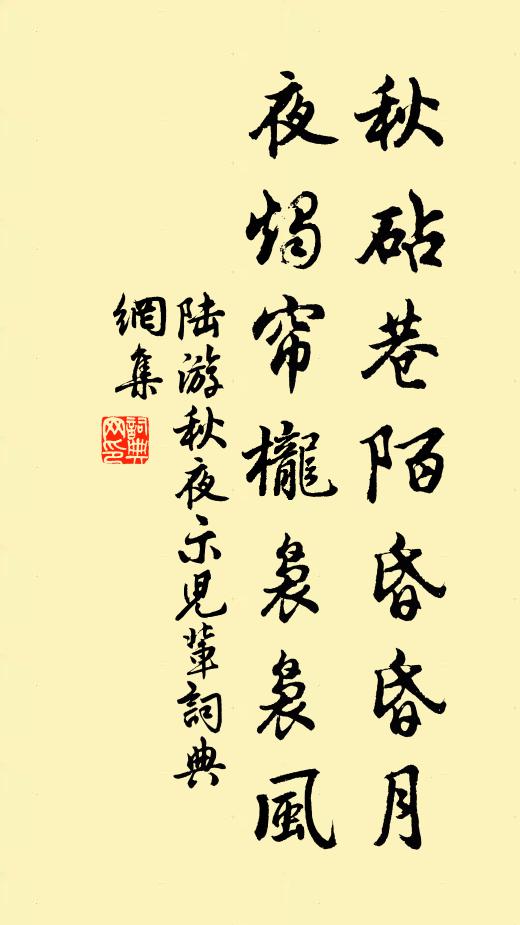 秋砧巷陌昏昏月
夜燭帘櫳裊裊風
陸游秋夜示兒輩詞典
網集
詞典網印